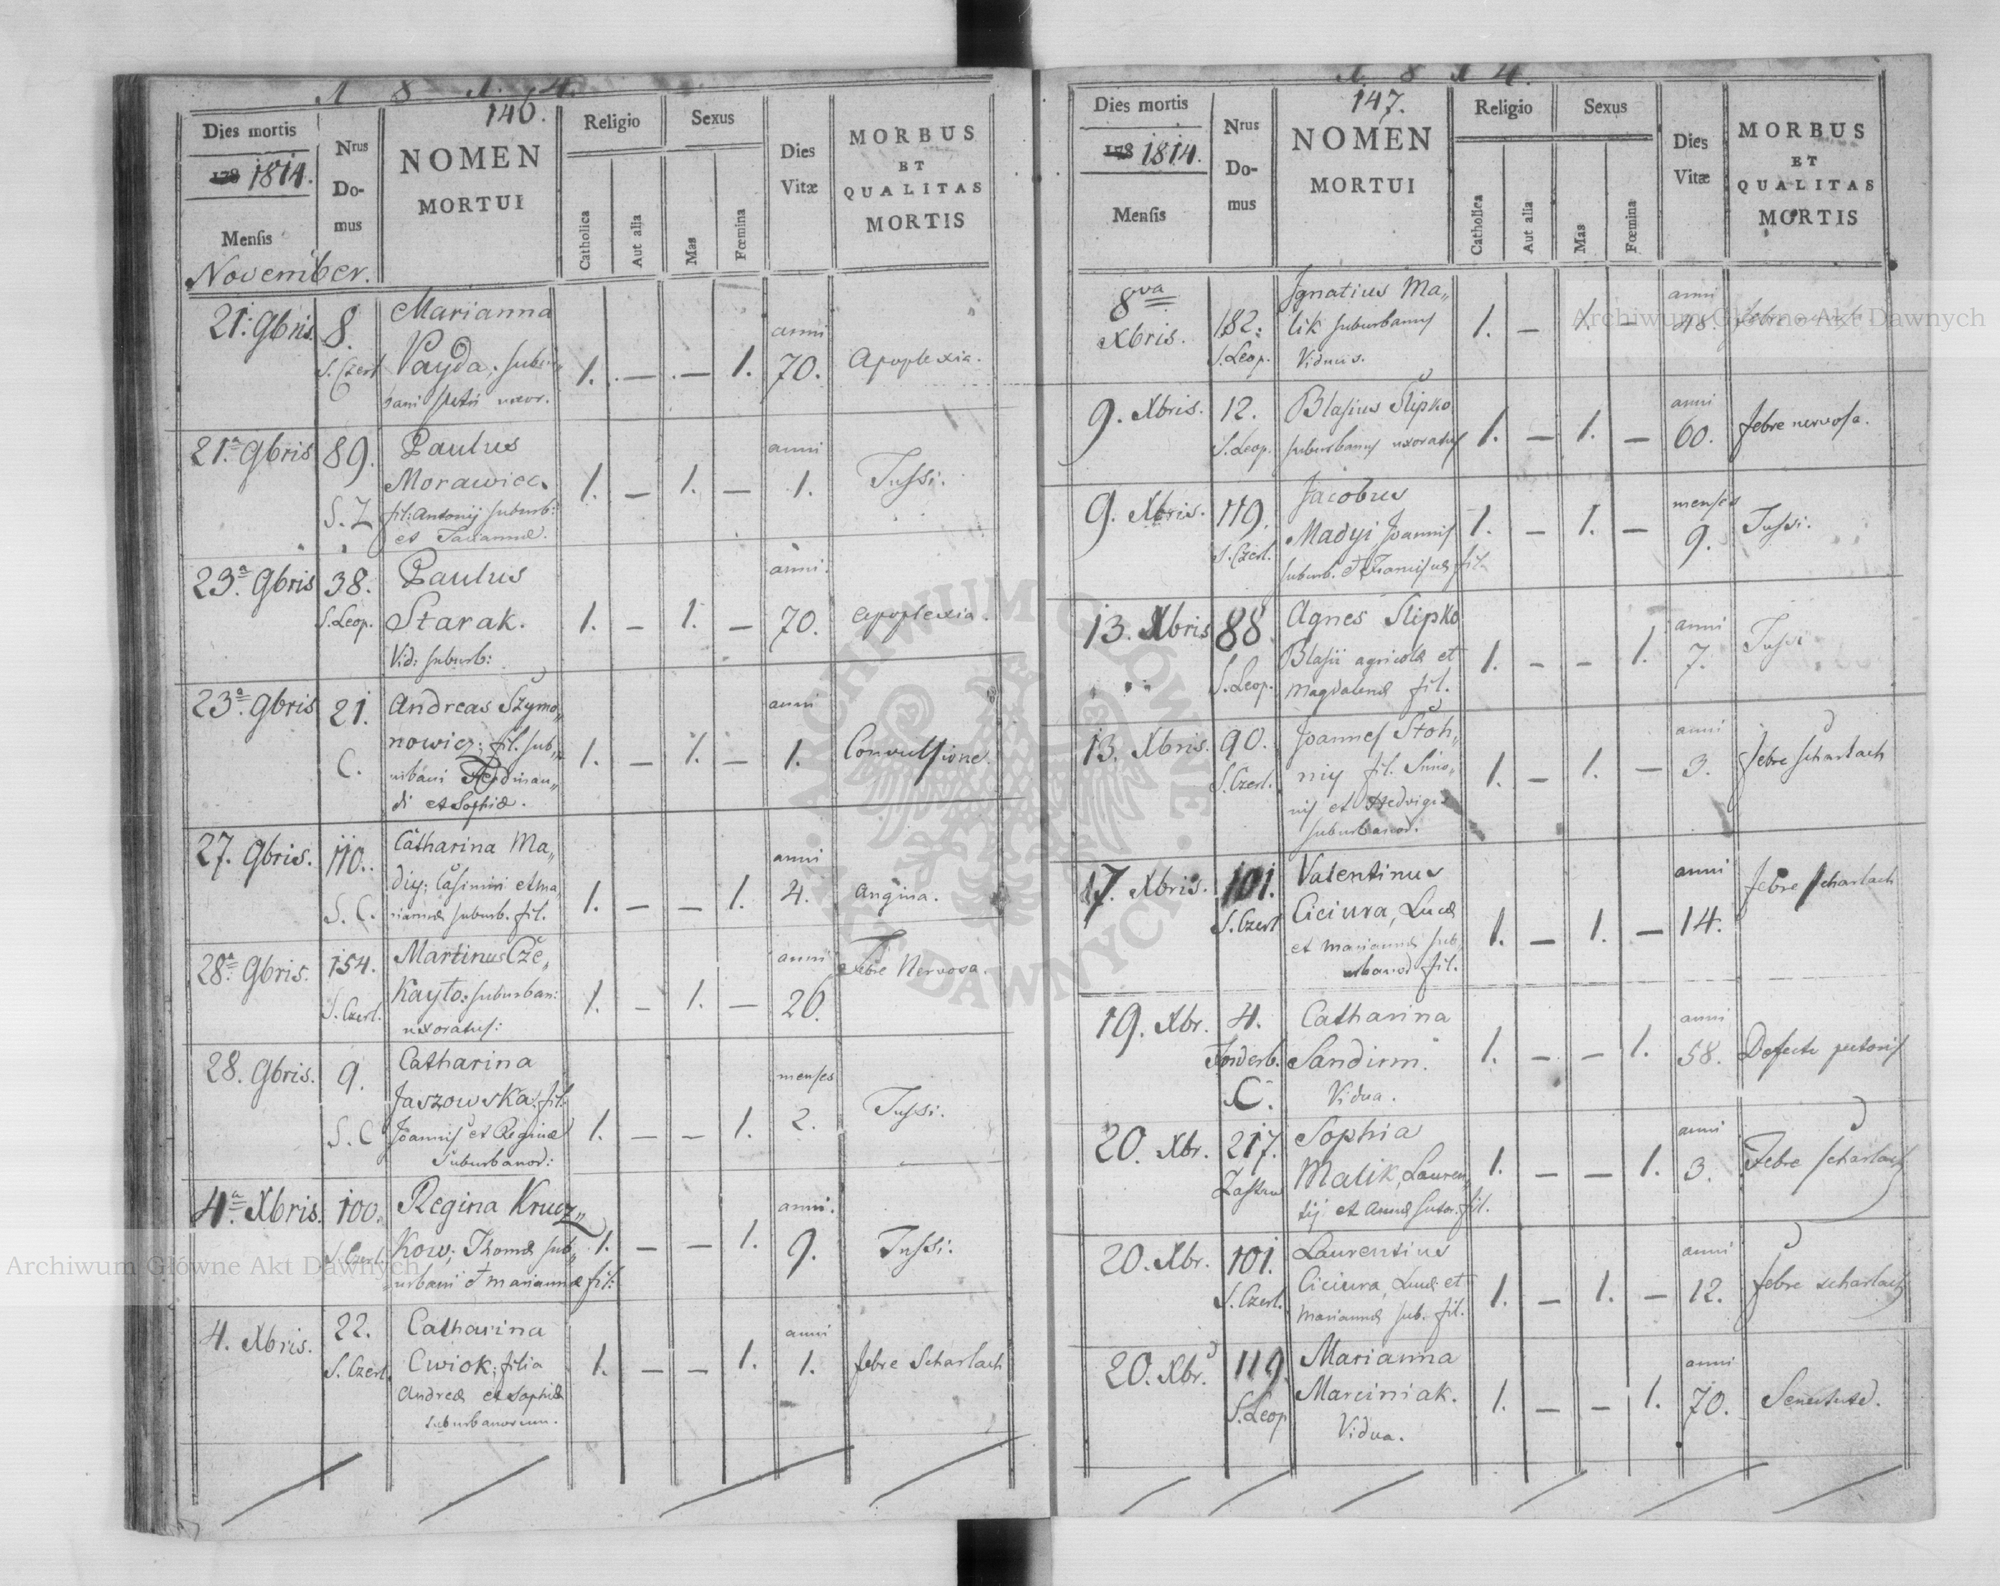 1 8 1 4.
146.
Dies mortis
178 1814.
Mensis
November.
Nrus
Do-
mus
NOMEN
MORTUI
Religio
Catholica
Aut alia
Sexus
Mas
Fœmina
Dies
Vitæ
MORBUS
ET
QUALITAS
MORTIS
21. 9bris. 8. Marianna
S. Czerl. Vayda, subur
bani uxor. 1. — — 1. anni 70. Apoplexia.
21.a 9bris 89. Paulus
S. Z Morawiec.
fil: Antonij suburb:
et 1. — 1. — anni 1. Tussi.
23.a 9bris 38. Paulus
S. Leop. Starak.
Vid: suburb: 1. — 1. — anni. 70. apoplexia.
23.a 9bris 21. Andreas Szymo„
C. nowicz; fil. sub„
urbani Ferdinan„
di et Sophiæ. 1. — 1. — anni 1. Convulsione.
27. 9bris. 110. Catharina Ma„
S. C. diy; Casimiri et Ma
riannæ suburb. fil. 1. — — 1. anni 4. Angina.
28a 9bris. 154. Martinus Cze„
S. Czerl. Kayto: suburban:
uxoratus: 1. — 1. — anni 26. Febre Nervosa.
28. 9bris. 9. Catharina
S. C Jaszowska, fil:
Joannis et Reginæ
Suburbanor: 1. — — 1. menses 2. Tussi.
4a Xbris. 100. Regina Krucz„
S. Czerl. Kow; Thomæ sub„
urbani et Mariannæ fil: 1. — — 1. anni. 9. Tussi.
4. Xbris. 22. Catharina
S. Czerl. Cwiok; filia
Andreæ et Sophiæ
suburbanorum. 1. — — 1. anni 1. febre Scharlach
1 8 1 4.
147.
Dies mortis
178 1814.
Mensis
Nrus
Do-
mus
NOMEN
MORTUI
Religio
Catholica
Aut alia
Sexus
Mas
Fœmina
Dies
Vitæ
MORBUS
ET
QUALITAS
MORTIS
8va Xbris. 182: Ignatius Ma„
S. Leop. lik suburbanus
Viduus. 1. — 1. — anni 48. febre
9. Xbris. 12. Blasius Slipko
S. Leop. suburbanus uxoratus 1. — 1. — anni 60. febre nervosa.
9. Xbris. 119. Jacobus
S. Czerl. Madyi, Joannis
suburb. et Franciscæ fil. 1. — 1. — menses 9. Tussi.
13. Xbris 88. Agnes Slipko
S. Leop. Blasii agricolæ et
Magdalenæ fil. 1. — — 1. anni 7. Tussi
13. Xbris. 90. Joannes Stoh„
S. Czerl. niy fil. Simo„
nis et Hedvigis
suburbanor. 1. — 1. — anni 3. febre scharlach
17. Xbris. 101. Valentinus
S. Czerl Ciciura, Lucæ
et Mariannæ sub„
urbanor. fil. 1. — 1. — anni 14. febre scharlach
19. Xbr. 4. Catharina
C. Sandirm.
Vidua. 1. — — 1. anni 58. Defectu pectoris
20. Xbr. 217. Sophia
Zastaw Malik, Lauren„
tij et Annæ sutor. fil. 1. — — 1. anni 3. Febre scharlach
20. Xbr. 101. Laurentius
S. Czerl. Ciciura, Lucæ et
Mariannæ sub. fil. 1. — 1. — anni 12. febre scharlach
20. Xbr. 119. Marianna
S. Leop Marciniak.
Vidua. 1. — — 1. anni 70. Senectute.
Archiwum Główne Akt Dawnych
Archiwum Główne Akt Dawnych
ARCHIWUM GŁÓWNE
AKT DAWNYCH